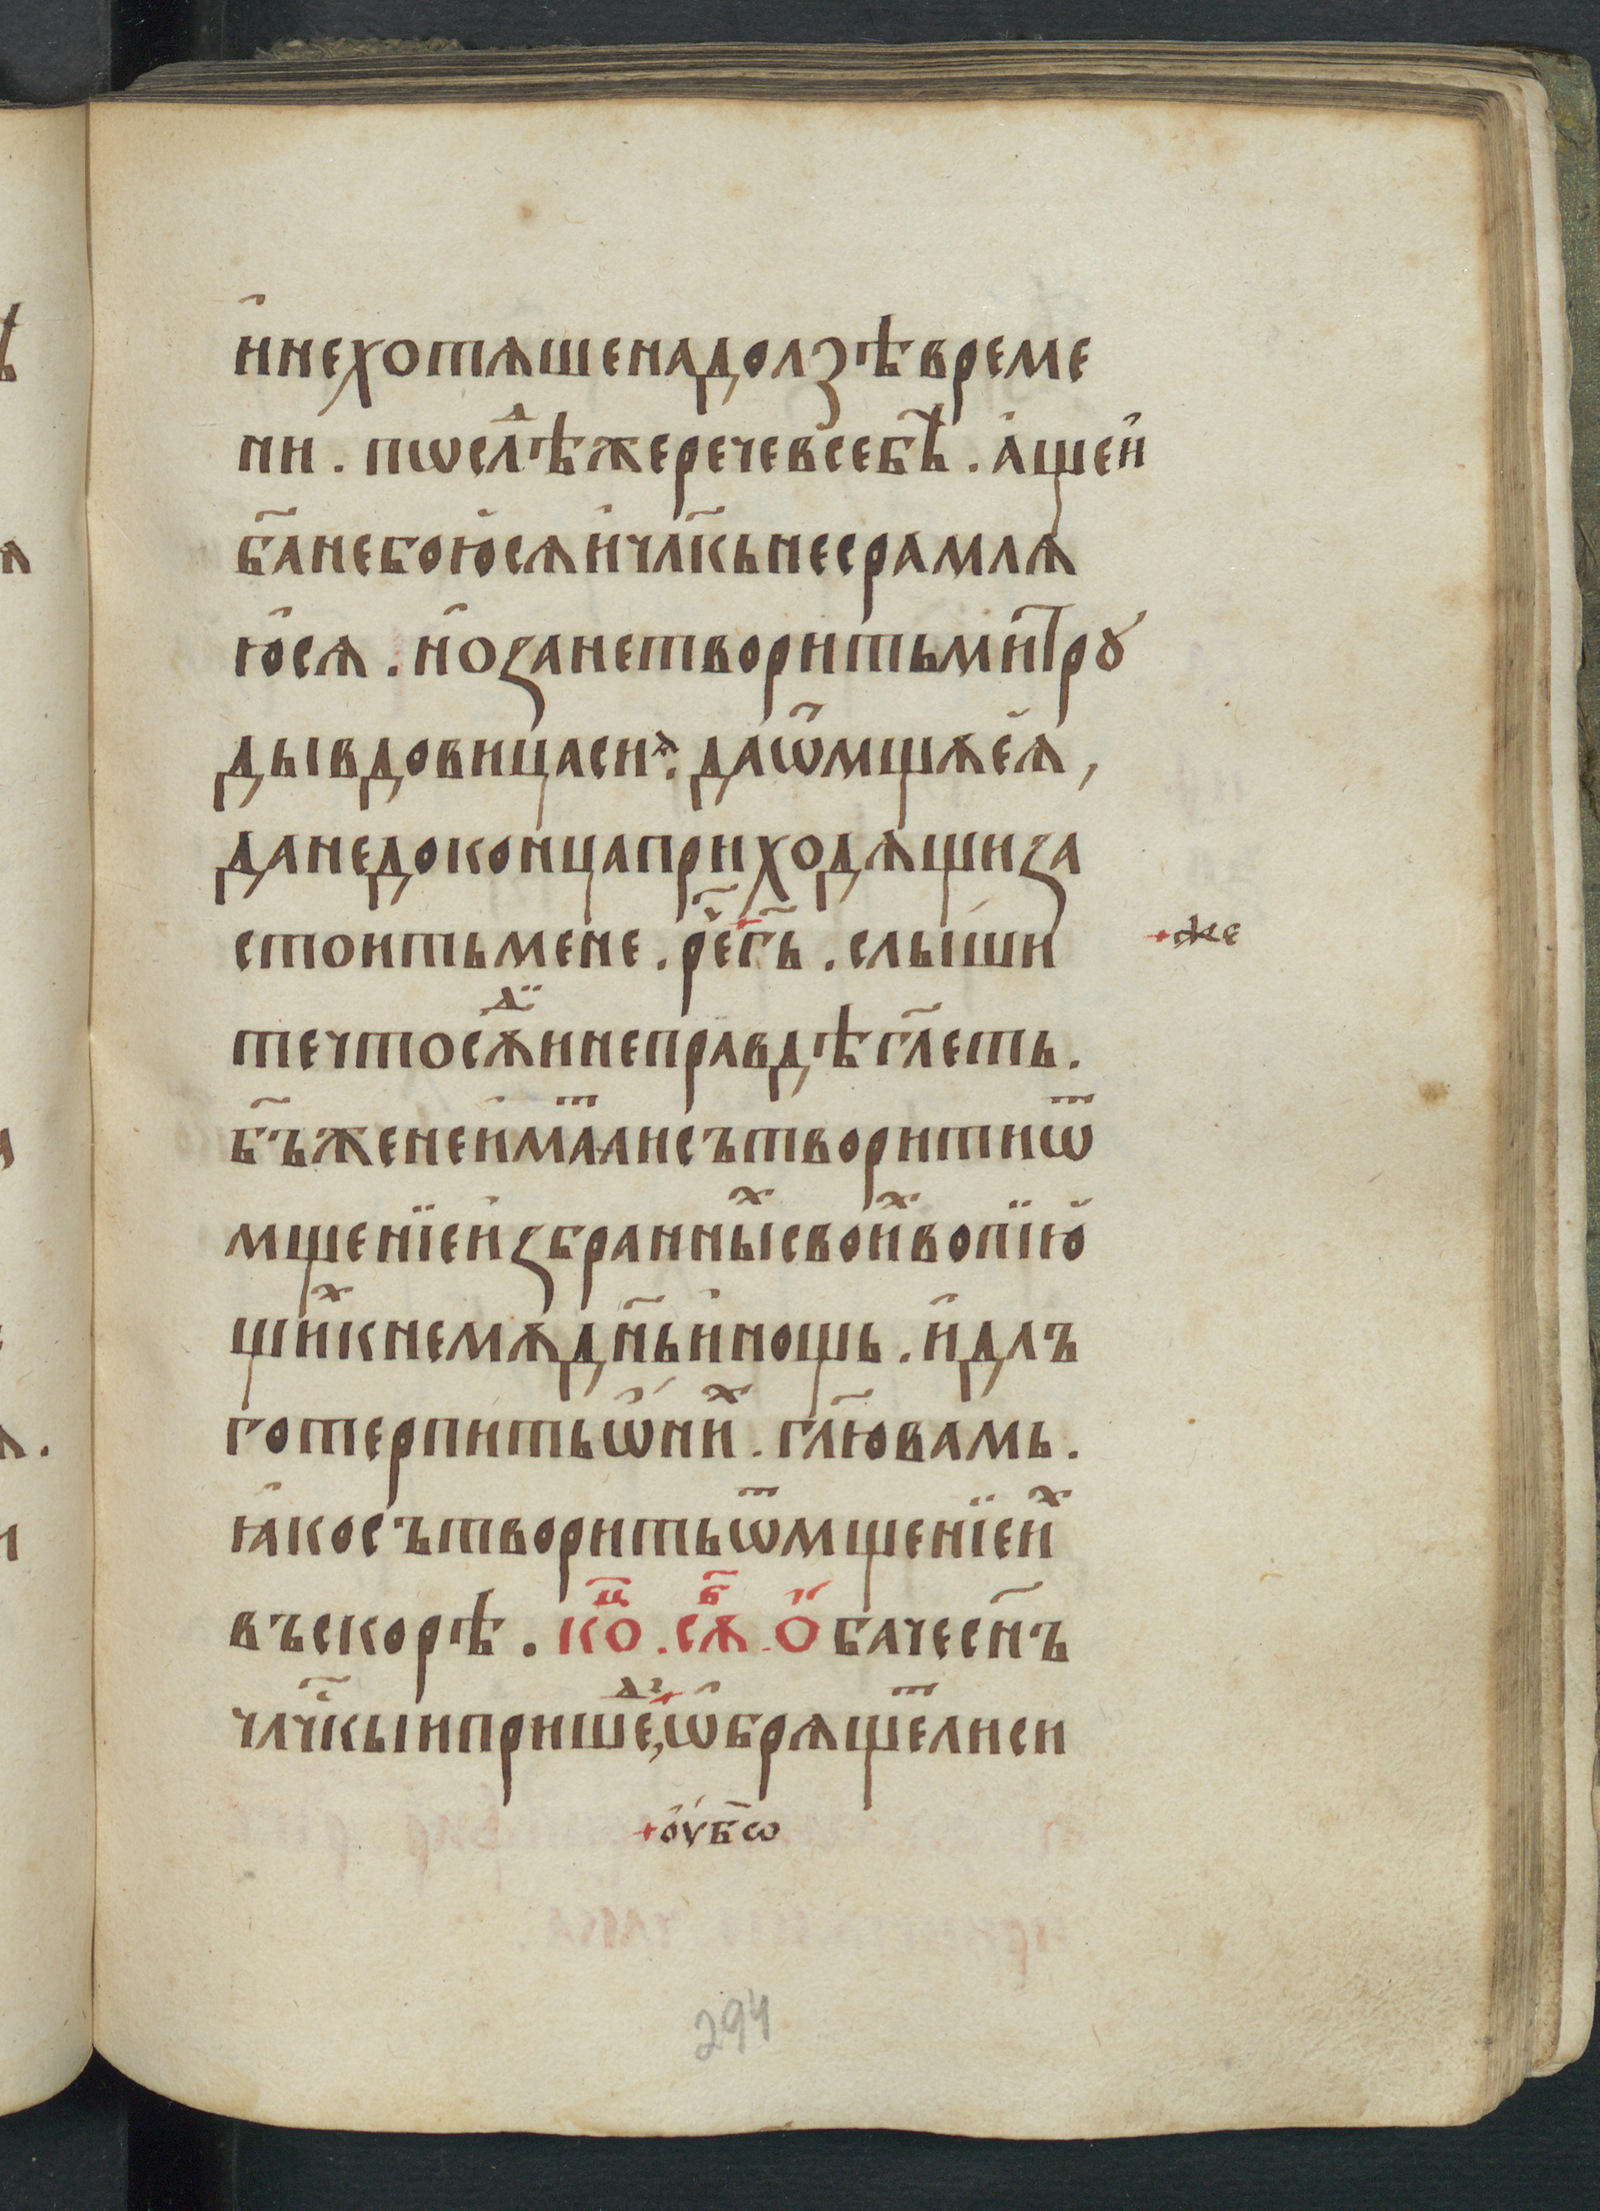 и҆нехотѧшенадолзѣвреме
ни. пѡслⷣѣжеречевсебѣ̀. а҆щеи҆
б҃анебою҆сѧи҆чл҃кьнесрамлѧ
ю҆сѧ. н҆озанетворитьмиⷮрꙋ
дывдовицасиꙗ. даѿмщꙋсеѧ,
данедоконцаприходѧщиза
стоитьмене. ре҃+г҃ь. слы́ши
+же
течтосꙋⷣїинеправдѣгл҃еть.
б҃ъженеи҆маⷮлисътворитиѿ
мщенїеи҆збранныⷯсвоиⷯвопїю҆
щиⷯкнемꙋдн҃ьи҆нощь. и҆длъ
готерпитьѡ҆ниⷯ. гл҃ювамь.
ꙗ҆косътворитьѿмщенїеиⷯ
въскорѣ. коⷰ. сꙋⷠ. Ѻ҆бачесн҃ъ
чл҃чкыипришеⷣ,+ѡ҆брѧщеⷮлиси
+оу҆б҃ѡ
294